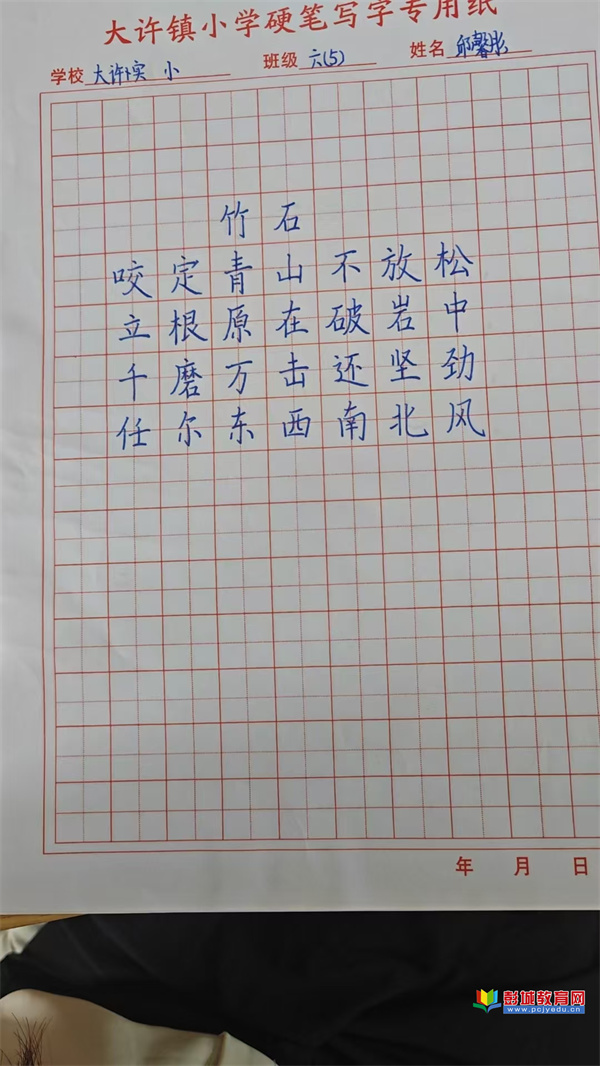 大许镇小学硬笔写字专用纸
学校 大许实小 班级 六(5) 姓名 邱馨彤
竹石
咬定青山不放松
立根原在破岩中
千磨万击还坚劲
任尔东西南北风
年 月 日
彭城教育网
www.pcjyedu.cn